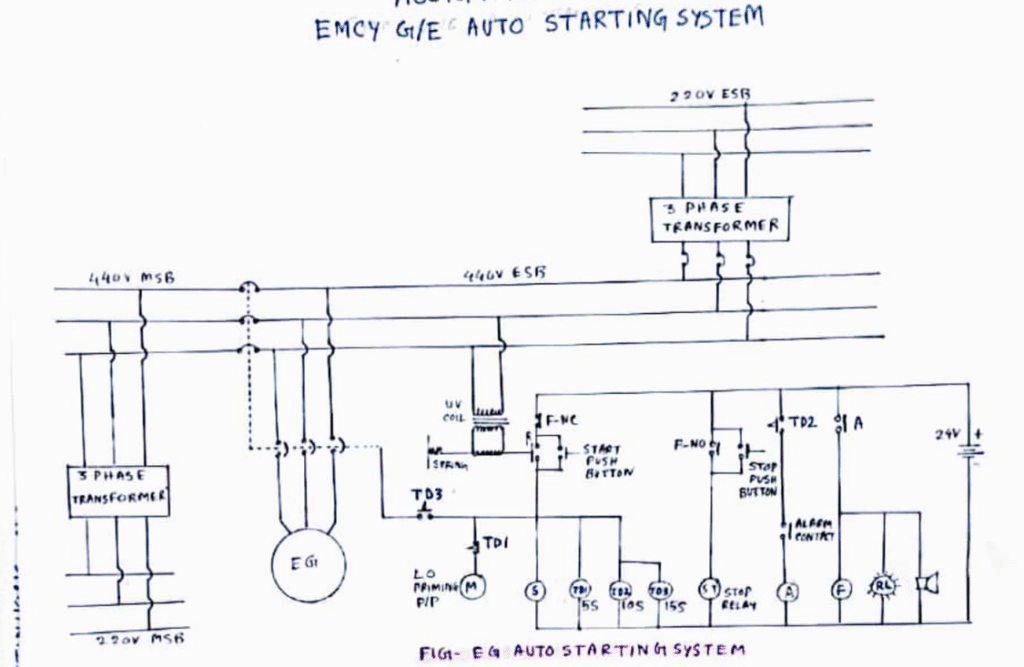 EMCY G/E AUTO STARTING SYSTEM
220V ESB
3 PHASE
TRANSFORMER
440V MSB
440V ESB
UV
COIL
SPRING
F-NC
START
PUSH
BUTTON
F-NO
STOP
PUSH
BUTTON
TD2
A
24V
+
3 PHASE
TRANSFORMER
TD3
TD1
ALARM
CONTACT
EG
LO
PRIMING
P/P
M
S
TD1
5S
TD2
10S
TD3
15S
ST
STOP
RELAY
A
F
RL
220V MSB
FIG- EG AUTO STARTING SYSTEM